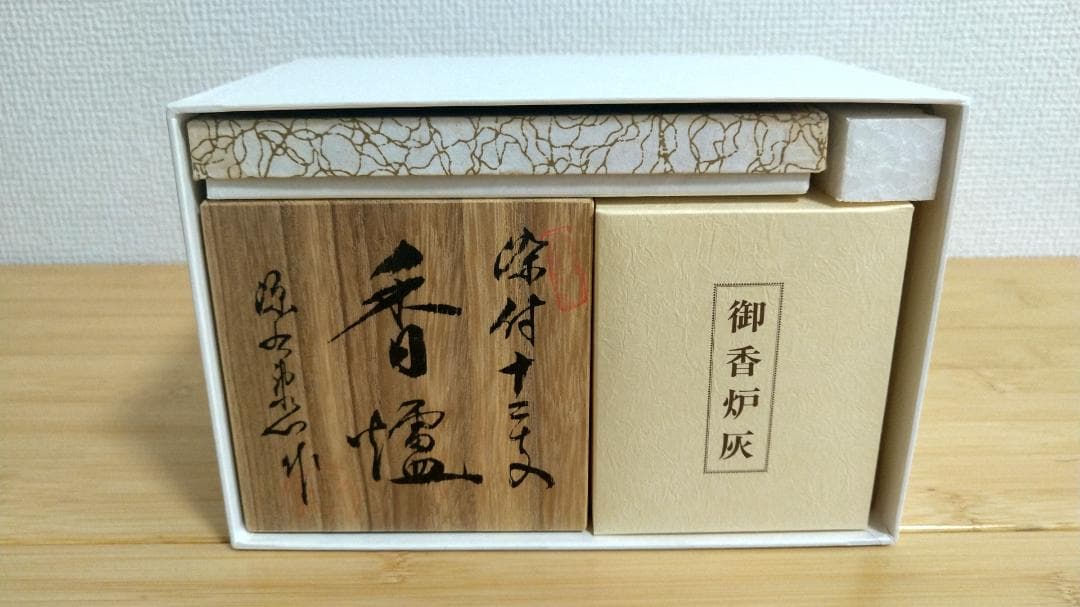 染付十二支
香爐
作
御香炉灰